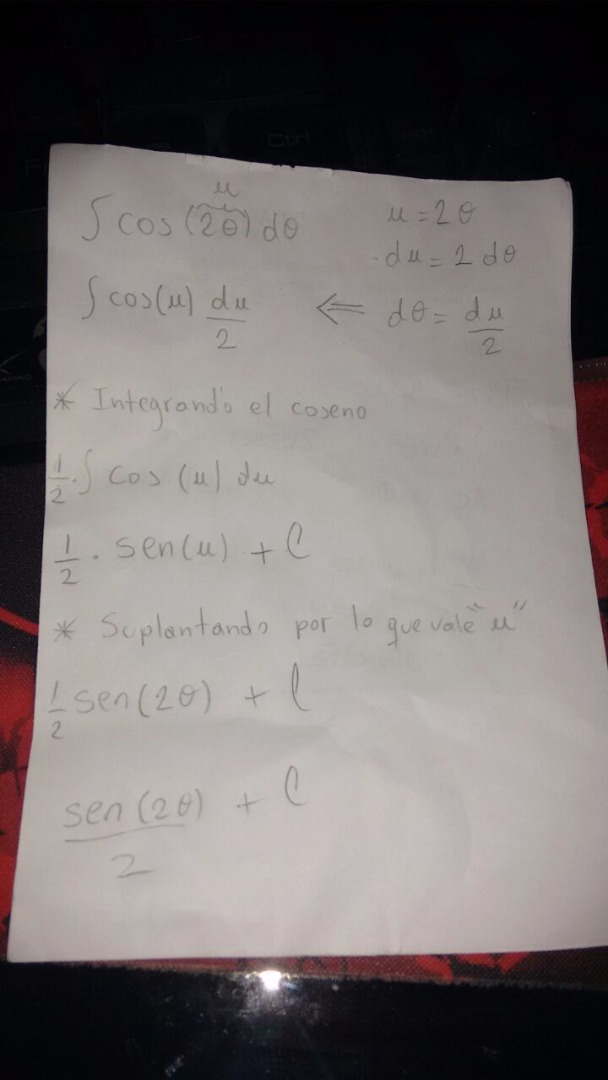 u
∫ cos (2θ) dθ u = 2θ
du = 2 dθ
∫ cos(u) du/2 ⇐ dθ = du/2
* Integrando el coseno
1/2 · ∫ cos (u) du
1/2 · sen(u) + C
* Suplantando por lo que vale "u"
1/2 sen(2θ) + C
sen (2θ)/2 + C
Ctrl